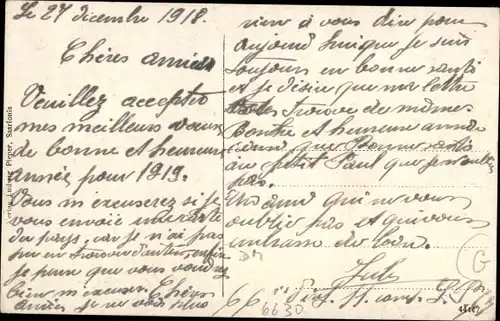 Le 27 dicembre 1918.
Chères amies
Veuillez accepter
mes meilleurs vœux
de bonne et heureuse
année pour 1919.
Vous m'excuserez si je
vous envoie une carte
du pays, car je n'ai pas
pu en trouver d'autres, enfin
je pense que vous voudrez
bien m'excuser. Chères
amies je ne vois plus
rien à vous dire pour
aujourd'hui que je suis
toujours en bonne santé
et je désire que ma lettre
trouve de même.
Bonne et heureuse année
ainsi que bonne santé
au petit Paul que je n'oublie
pas.
Un ami qui ne vous
oublie pas et qui vous
embrasse de loin.
Jules
G
6630
Ludwig Pieper, Saarlouis